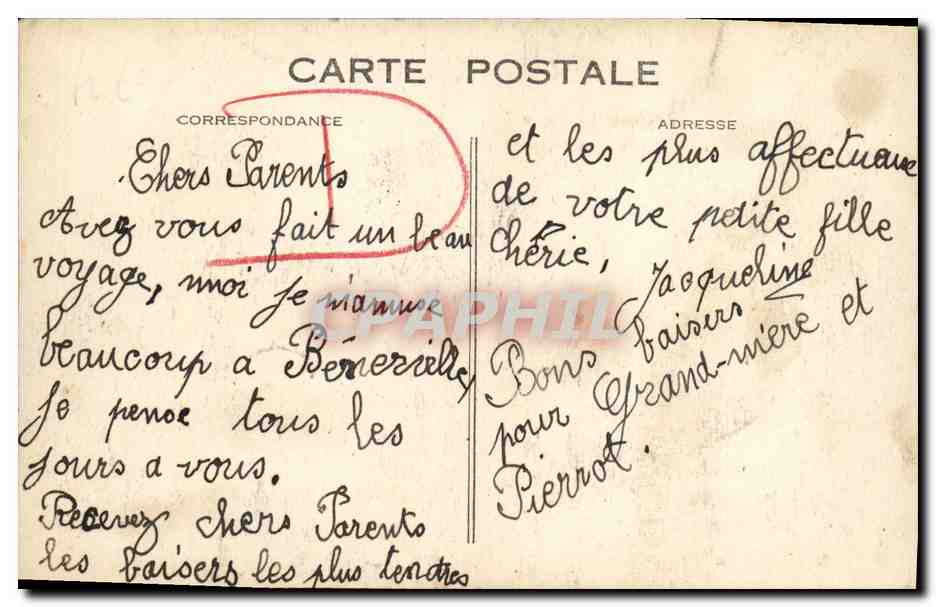 CARTE POSTALE
CORRESPONDANCE
Chers Parents
Avez vous fait un beau
voyage, moi je m'amuse
beaucoup a Bénerville,
Je pense tous les
jours a vous.
Recevez chers Parents
les baisers les plus tendres
ADRESSE
et les plus affectueuse
de votre petite fille
chérie,
Jacqueline
Bons baisers
pour Grand-mère et
Pierrot.
CPAPHIL
D